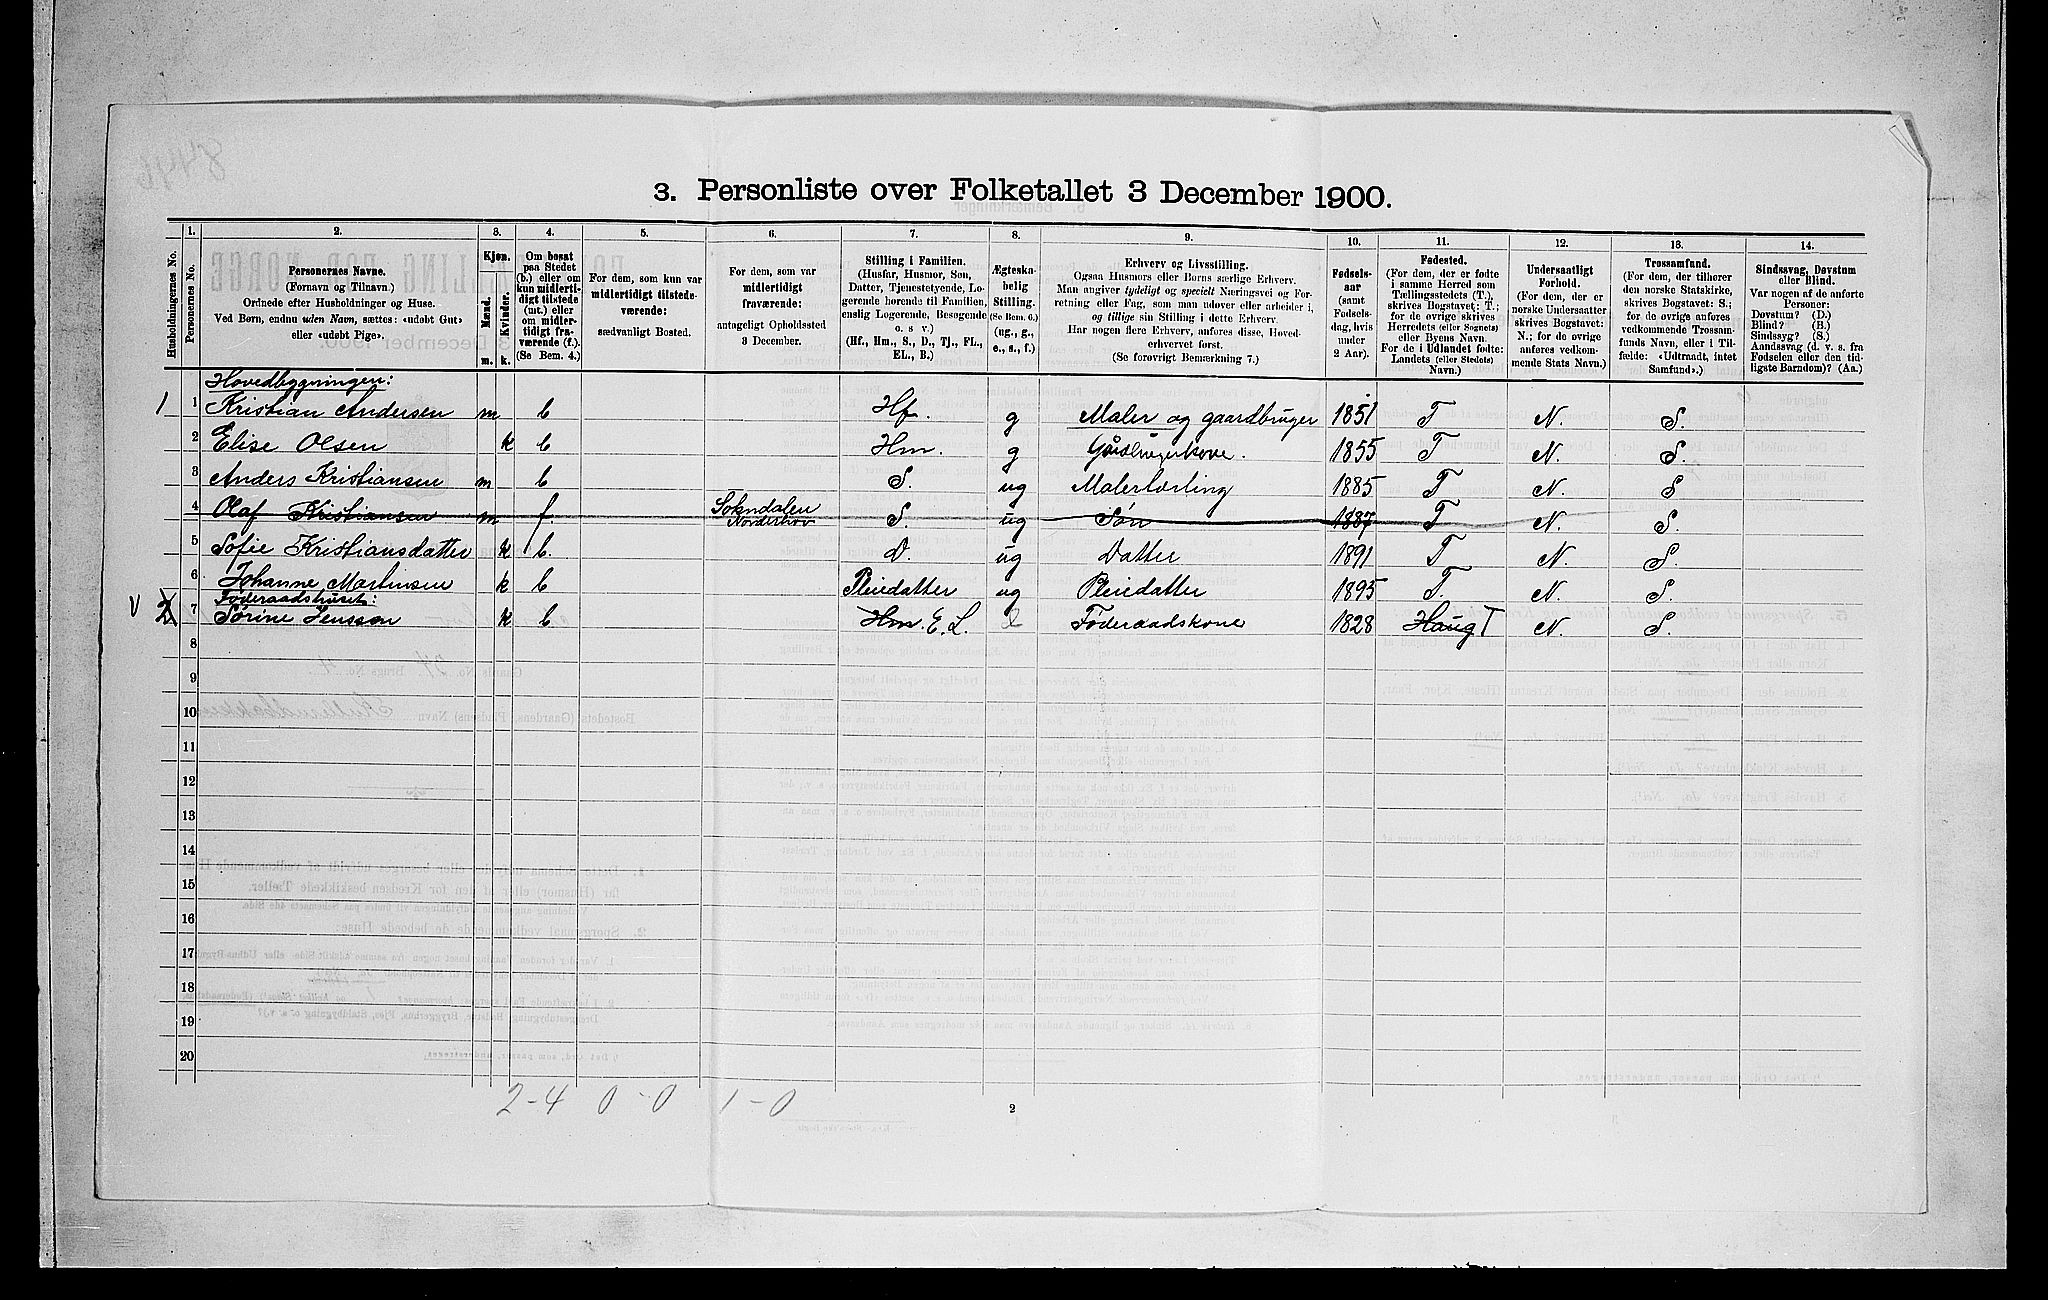 3. Personliste over Folketallet 3 December 1900.
Husholdningernes No.
1.
Personernes No.
2.
Personernes Navne.
(Fornavn og Tilnavn.)
Ordnede efter Husholdninger og Huse.
Ved Børn, endnu uden Navn, sættes: «udøbt Gut»
eller «udøbt Pige».
3.
Kjøn.
Mænd.
Kvinder.
m.
k.
4.
Om bosat
paa Stedet
(b.) eller om
kun midlerti-
digt tilstede
(mt.) eller
om midler-
tidigt fra-
værende (f.).
(Se Bem. 4.)
5.
For dem, som kun var
midlertidigt tilstede-
værende:
sædvanligt Bosted.
6.
For dem, som var
midlertidigt
fraværende:
antageligt Opholdssted
3 December.
7.
Stilling i Familien.
(Husfar, Husmor, Søn,
Datter, Tjenestetyende, Lo-
gerende hørende til Familien,
enslig Logerende, Besøgende
o. s v.)
(Hf., Hm., S., D., Tj., FL.,
EL., B.)
8.
Ægteska-
belig
Stilling.
(Se Bem. 6.)
(ug., g.,
e., s., f.)
9.
Erhverv og Livsstilling.
Ogsaa Husmors eller Børns særlige Erhverv.
Man angiver tydeligt og specielt Næringsvei og For-
retning eller Fag, som man udøver eller arbeider i,
og tillige sin Stilling i dette Erhverv.
Har nogen flere Erhverv, anføres disse, Hoved-
erhvervet først.
(Se forøvrigt Bemærkning 7.)
10.
Fødsels-
aar
(samt
Fødsels-
dag, hvis
under
2 Aar).
11.
Fødested.
(For dem, der er fødte
i samme Herred som
Tællingsstedets (T.),
skrives Bogstavet: T.;
for de øvrige skrives
Herredets (eller Sognets)
eller Byens Navn.
For de i Udlandet fødte:
Landets (eller Stedets)
Navn.)
12.
Undersaatligt
Forhold.
(For dem, der er
norske Undersaatter
skrives Bogstavet:
N.; for de øvrige
anføres vedkom-
mende Stats Navn.)
13.
Trossamfund.
(For dem, der tilhører
den norske Statskirke,
skrives Bogstavet: S.;
for de øvrige anføres
vedkommende Trossam-
funds Navn, eller i Til-
fælde: «Udtraadt, intet
Samfund».)
14.
Sindssvag, Døvstum
eller Blind.
Var nogen af de anførte
Personer:
Døvstum? (D.)
Blind? (B.)
Sindssyg? (S.)
Aandssvag (d. v. s. fra
Fødselen eller den tid-
ligste Barndom)? (Aa.)
Hovedbygningen:
1 1 Kristian Andersen m b Hf. g Maler og gaardbruger 1851 T N. S.
2 Elise Olsen k b Hm. g Gårdbrugerkone. 1855 T N. S.
3 Anders Kristiansen m b S. ug Malerlærling 1885 T N. S
4 Olaf Kristiansen m f. Sokndalen Norderhov S. ug Søn 1887 T N. S.
5 Sofie Kristiansdatter k b. D. ug Datter 1891 T N. S
6 Johanne Martinsen k b Pleiedatter ug Pleiedatter 1895 T. N. S.
Føderaadshuset:
V 2 7 Sørine Jensson k b Hm. E. L. e Føderaadskone 1828 Haug T N. S.
8
9
10
11
12
13
14
15
16
17
18
19
20
2-4 0-0 1-0
2